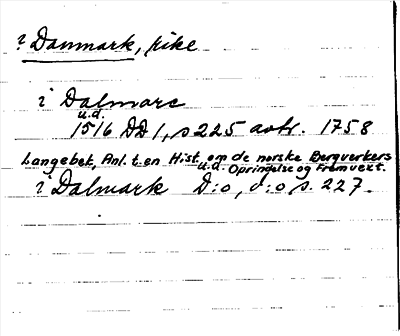 ? Danmark, rike
i Dalmarc
u.d.
1516 DD1, s 225 avtr. 1758
Langebek, Anl. t. en Hist. om de norske Bergverkers
u.d. Oprindelse og Fremvext.
i Dalmark D:o, d:o s. 227.